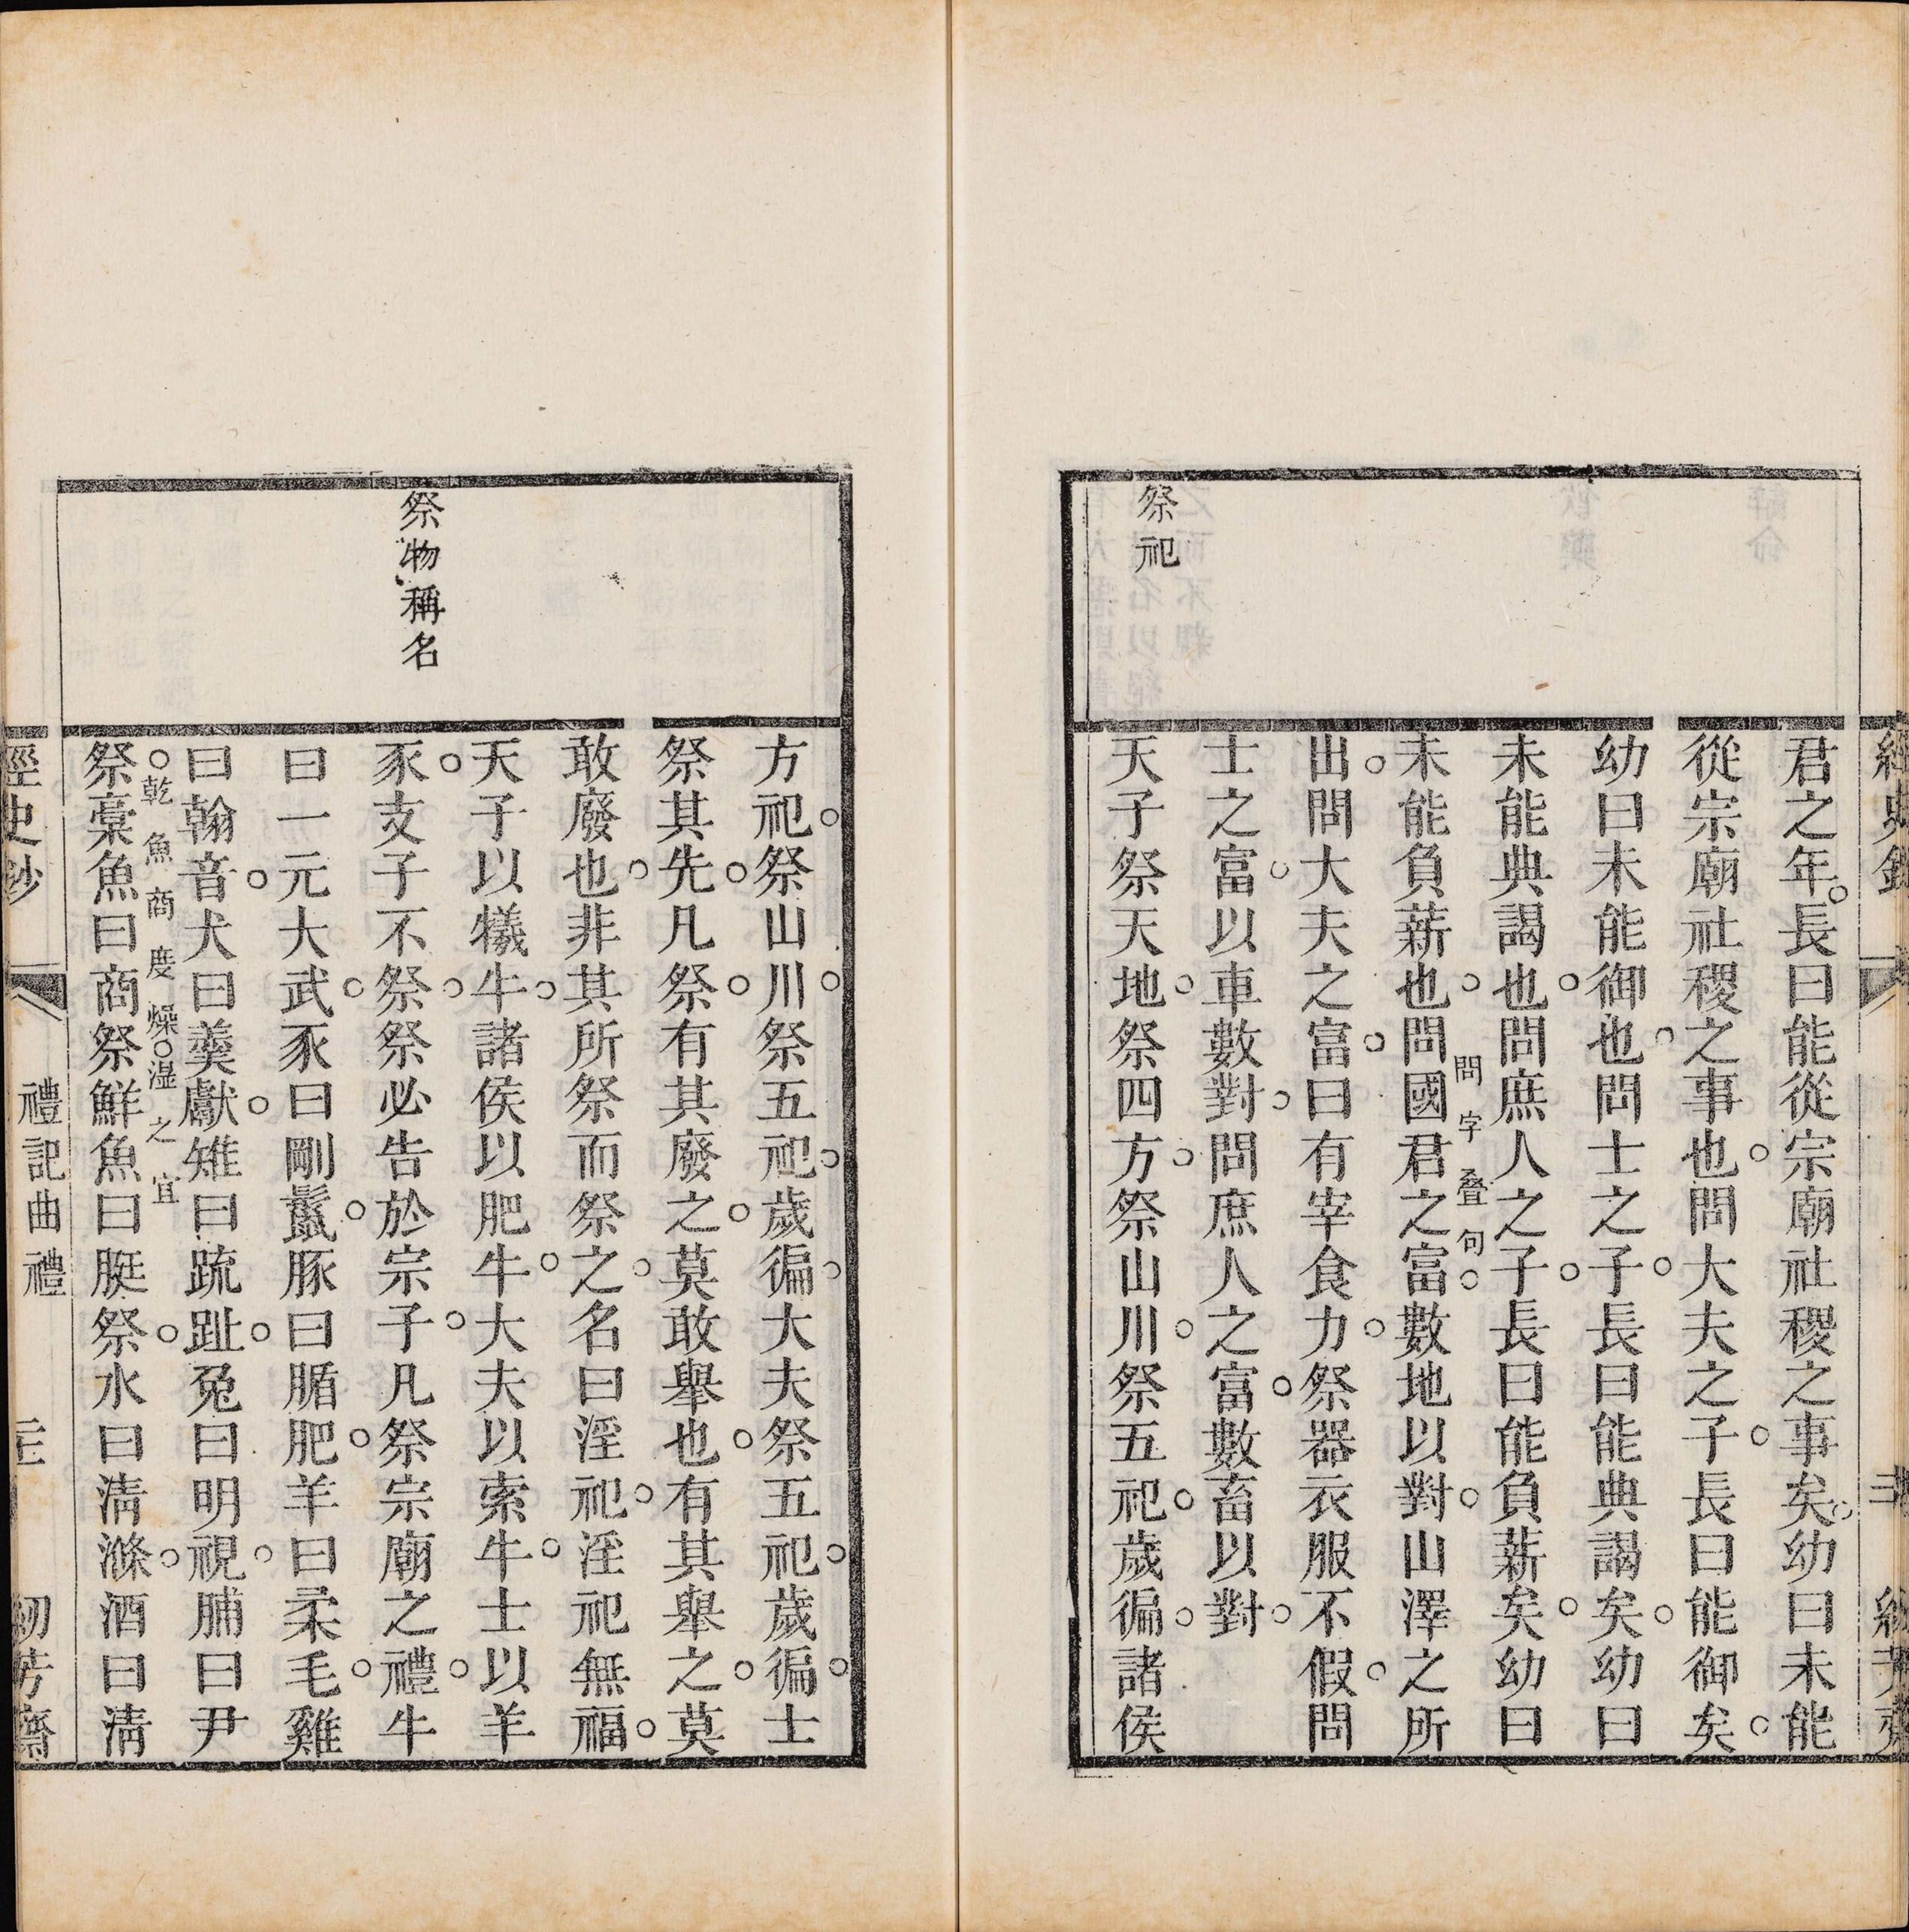 君之年長曰能從宗廟社稷之事矣幼曰未能
從宗廟社稷之事也問大夫之子長曰能御矣
幼曰未能御也問士之子長曰能典謁矣幼曰
未能典謁也問庶人之子長曰能負薪矣幼曰
未能負薪也問國君之富數地以對山澤之所
問字叠句
出問大夫之富曰有宰食力祭器衣服不假問
士之富以車數對問庶人之富數畜以對
祭祀
天子祭天地祭四方祭山川祭五祀歲徧諸侯
方祀祭山川祭五祀歲徧大夫祭五祀歲徧士
祭其先凡祭有其廢之莫敢舉也有其舉之莫
敢廢也非其所祭而祭之名曰淫祀淫祀無福
天子以犧牛諸侯以肥牛大夫以索牛士以羊
豕支子不祭祭必告於宗子凡祭宗廟之禮牛
祭物稱名
曰一元大武豕曰剛鬣豚曰腯肥羊曰柔毛雞
曰翰音犬曰羹獻雉曰疏趾兔曰明視脯曰尹
乾魚商度燥湿之宜
祭槀魚曰商祭鮮魚曰脡祭水曰淸滌酒曰淸
經史鈔 禮記曲禮 紉芳齋